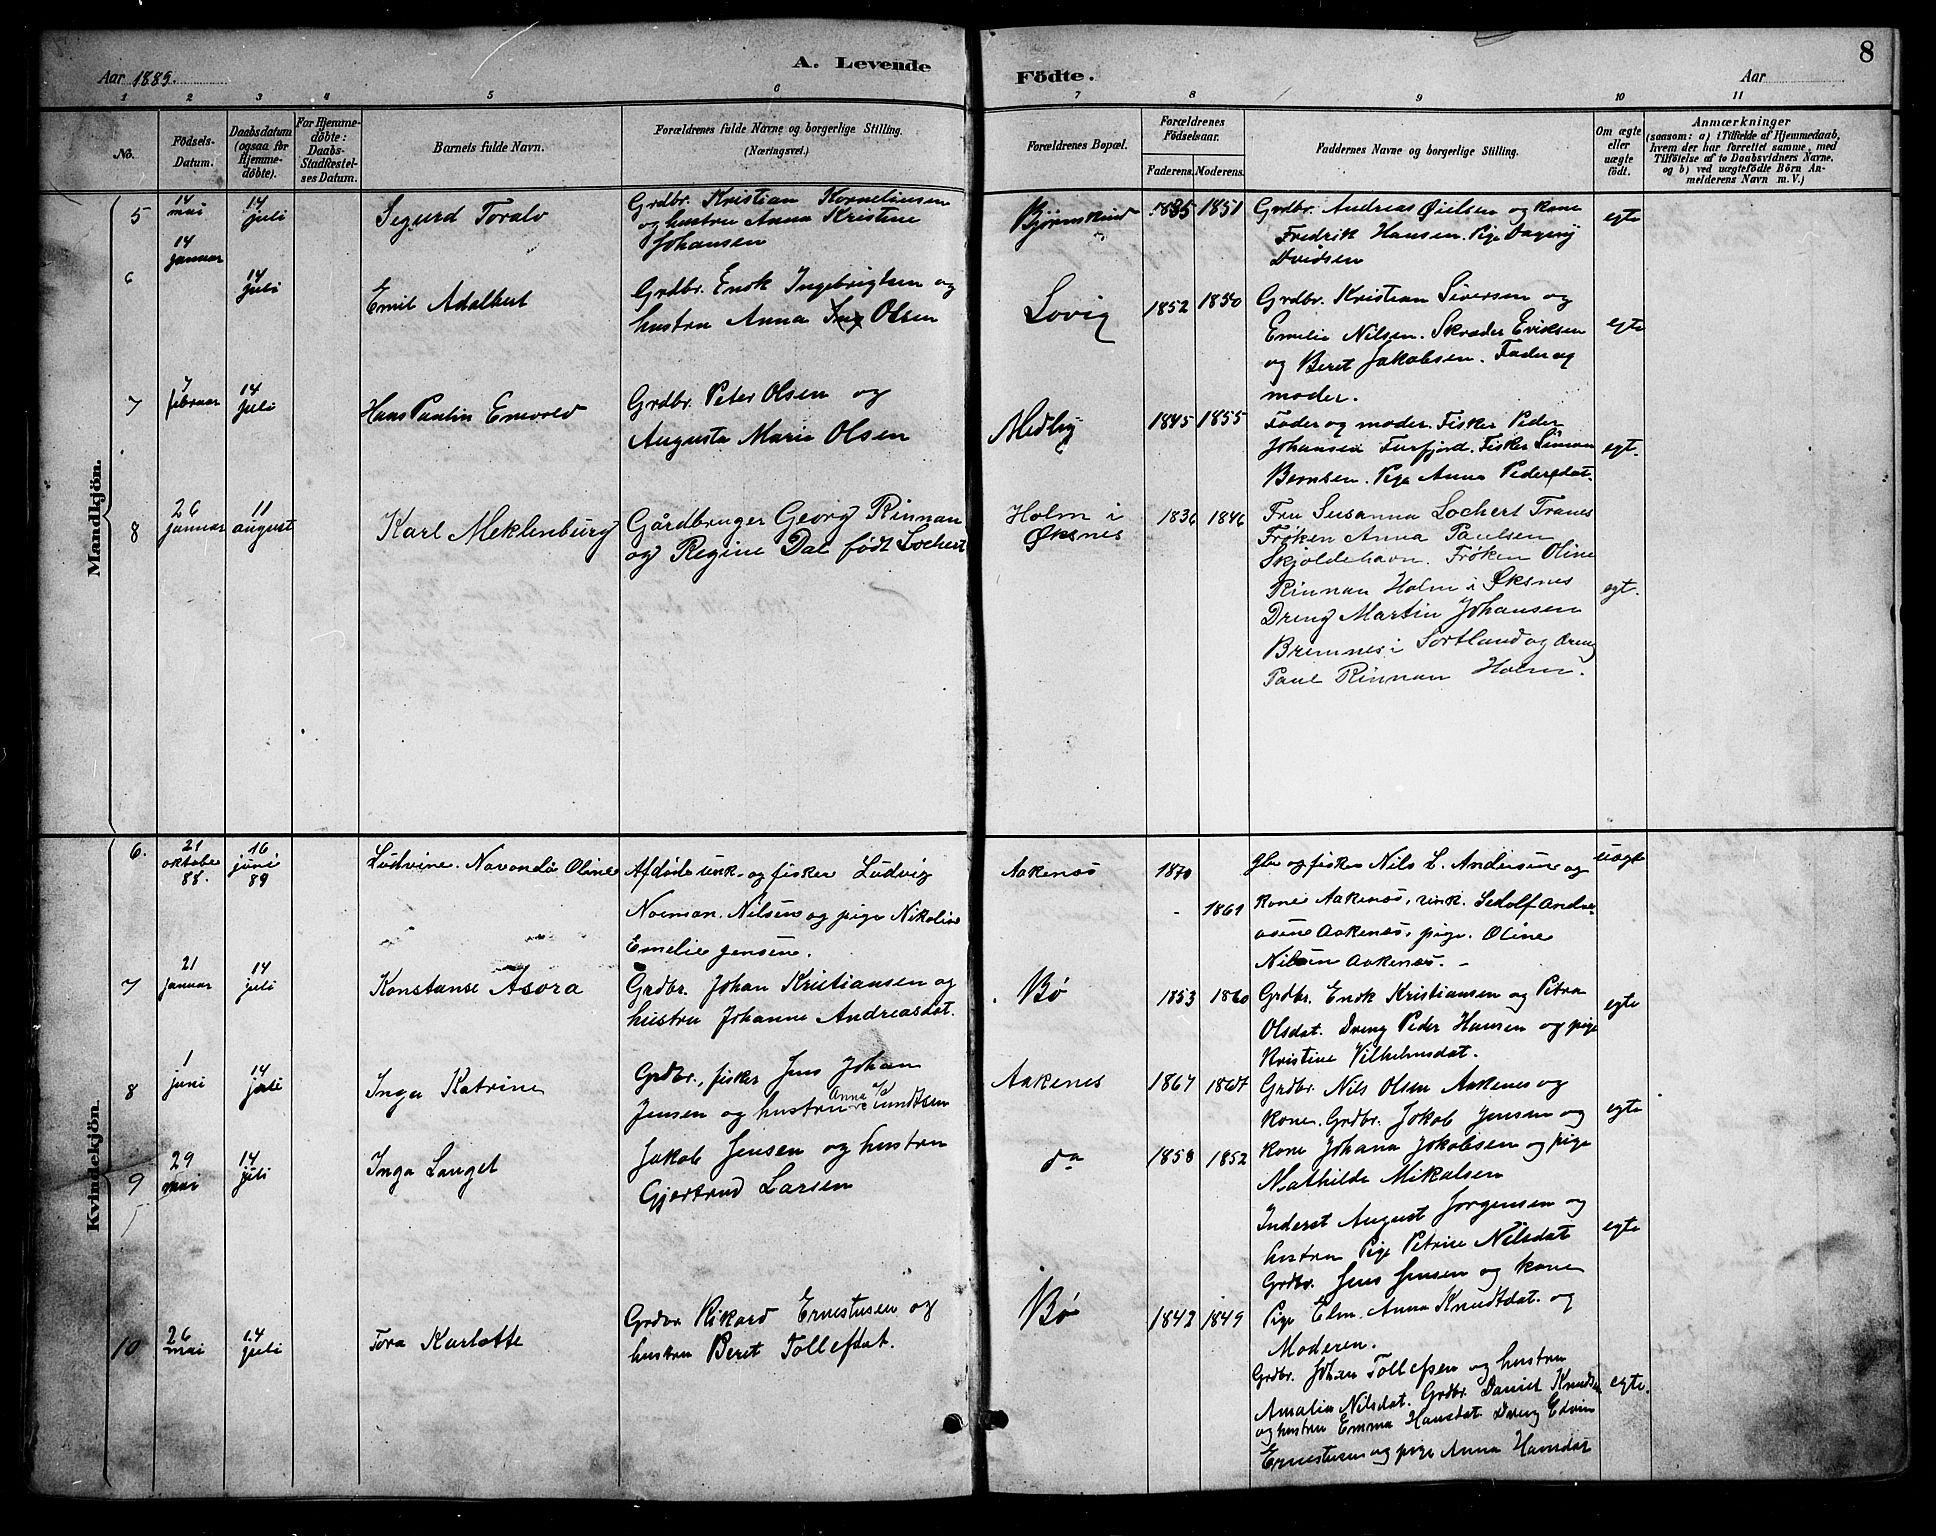 Aar 1889.
A. Levende
Födte.
Aar
8
1 2 3 4 5 6 7 8 9 10 11
No.
Födsels-
Datum.
Daabsdatum
(ogsaa for
Hjemme-
døbte).
For Hjemme-
døbte:
Daabs-
Stadfæstel-
ses Datum.
Barnets fulde Navn.
Forældrenes fulde Navne og borgerlige Stilling.
(Næringsvei.)
Forældrenes Bopæl.
Forældrenes
Fødselsaar.
Faderens. Moderens.
Faddernes Navne og borgerlige Stilling.
Om ægte
eller
uægte
født.
Anmærkninger
(saasom: a) i Tilfælde af Hjemmedaab,
hvem der har forrettet samme, med
Tilføielse af to Daabsvidners Navne,
og b) ved uægtefødte Børn An-
melderens Navn m. V.)
Mandkjön.
5
14
mai
14
juli
Sigurd Toralv
Grdbr. Kristian Korneliussen
og hustru Anna Kristine
Johansen
Bjørnskind
1835 1851
Grdbr. Andreas Øielsen og kone
Fredrik Hansen. Pige Dagny
egte
6
14
januar
14
juli
Emil Adalbert
Grdbr. Enok Ingebrigtsen og
hustru Anna Olsen
Lovig
1852 1850
Grdbr. Kristian Siversen og
Emelie Nilsen. Skræder Eriksen
og Beret Jakobsen. Fader og
moder.
egte
7
7
februar
14
juli
Hans Paulin Emvold
Grdbr. Peter Olsen og
Augusta Marie Olsen
Medby
1845 1855
Fader og moder. Fisker Peder
Johansen Furfjord. Fisker Simon
Berntsen. Pige Anna Pedersdat.
egt.
8
26
januar
11
august
Karl Meklenburg
Gårdbruger Georg Rinnan
og Regine Dal født Lochert
Holm i
Øksnes
1836 1846
Fru Susanna Lochert Tranes
Frøken Anna Paulsen
Skjoldehavn. Frøken Oline
Rinnan Holm i Øksnes
Dreng Martin Johansen
Bremnes i Sortland og dreng
Paul Rinnan Holm.
egt.
Kvindekjön.
6.
21
oktober
88.
16
juni
89
Ludvine. Novanda Oline
Afdøde unk. og fisker Ludvig
Norman. Nilsen og pige Nikoline
Emelie Jensen.
Aakenes
1870
- 1861
gbr og fisker Nils L. Andersen og
kone Aakenes, unk. Sedolf Andre-
asene Aakenes, pige. Oline
Nilsen Aakenes. -
uegt
7
21
januar
14
juli
Konstanse Asora
Grdbr. Johan Kristiansen og
hustru Johanne Andreasdat.
Bø
1853 1860
Grdbr. Enok Kristiansen og Petra
Olsdat. Dreng Peder Hansen og pige
Kristine Vilhelmsdat.
egte
8
1
juni
14
juli
Inga Katrine
Grdbr., fisker Jens Johan
Jensen og hustru Anna Knudtsen
Aakenes
1867 1867
Grdbr. Nils Olsen Aakenes og
kone. Grdbr. Jokob Jensen og
kone Johana Jokobsen og pige
Mathilde Mikalsen
egte
9
29
mai
14
juli
Inga Lauget
Jakob Jensen og hustru
Gjertrud Larsen
do
1858 1852
Inderst August Jørgensen og
hustru Pige Petrine Nilsdat
Grdbr. Jens Jensen og kone
Pige Elen Anna Knudtdat. og
Moderen.
egte
10
26
mai
14
juli
Tora Karlotte
Grdbr. Rikard Ernestusen og
hustru Beret Tollefdat.
Bø
1843 1849
Grdbr. Johan Tollefsen og hustru
Amalia Nilsdat. Grdbr. Daniel Knudsen
og hustru Emma Hansdat. Dreng Edvin
Ernestusen og pige Anna Hansdat
egte.